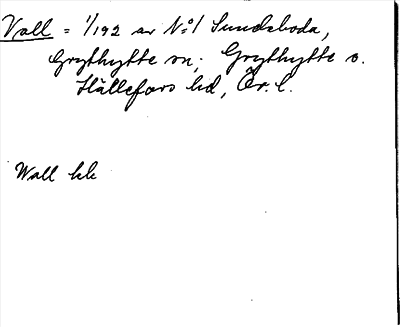 Vall = 1/192 av No 1 Sundsboda,
Grythytte sn; Grythytte o.
Hällefors bd, Ör. l.
Wall kk